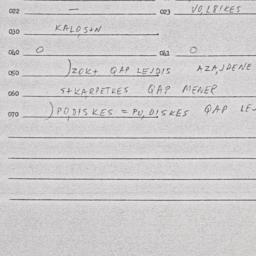 022 — 023 VO,LBIKES
030 KALO,S+N
040 O 041 O
050 )ZOK+ QAP LEJDIS AZAJDENE
060 S+KARPETKES QAP MENER
070 )PO,DISKES = PO,DISKES QAP LE